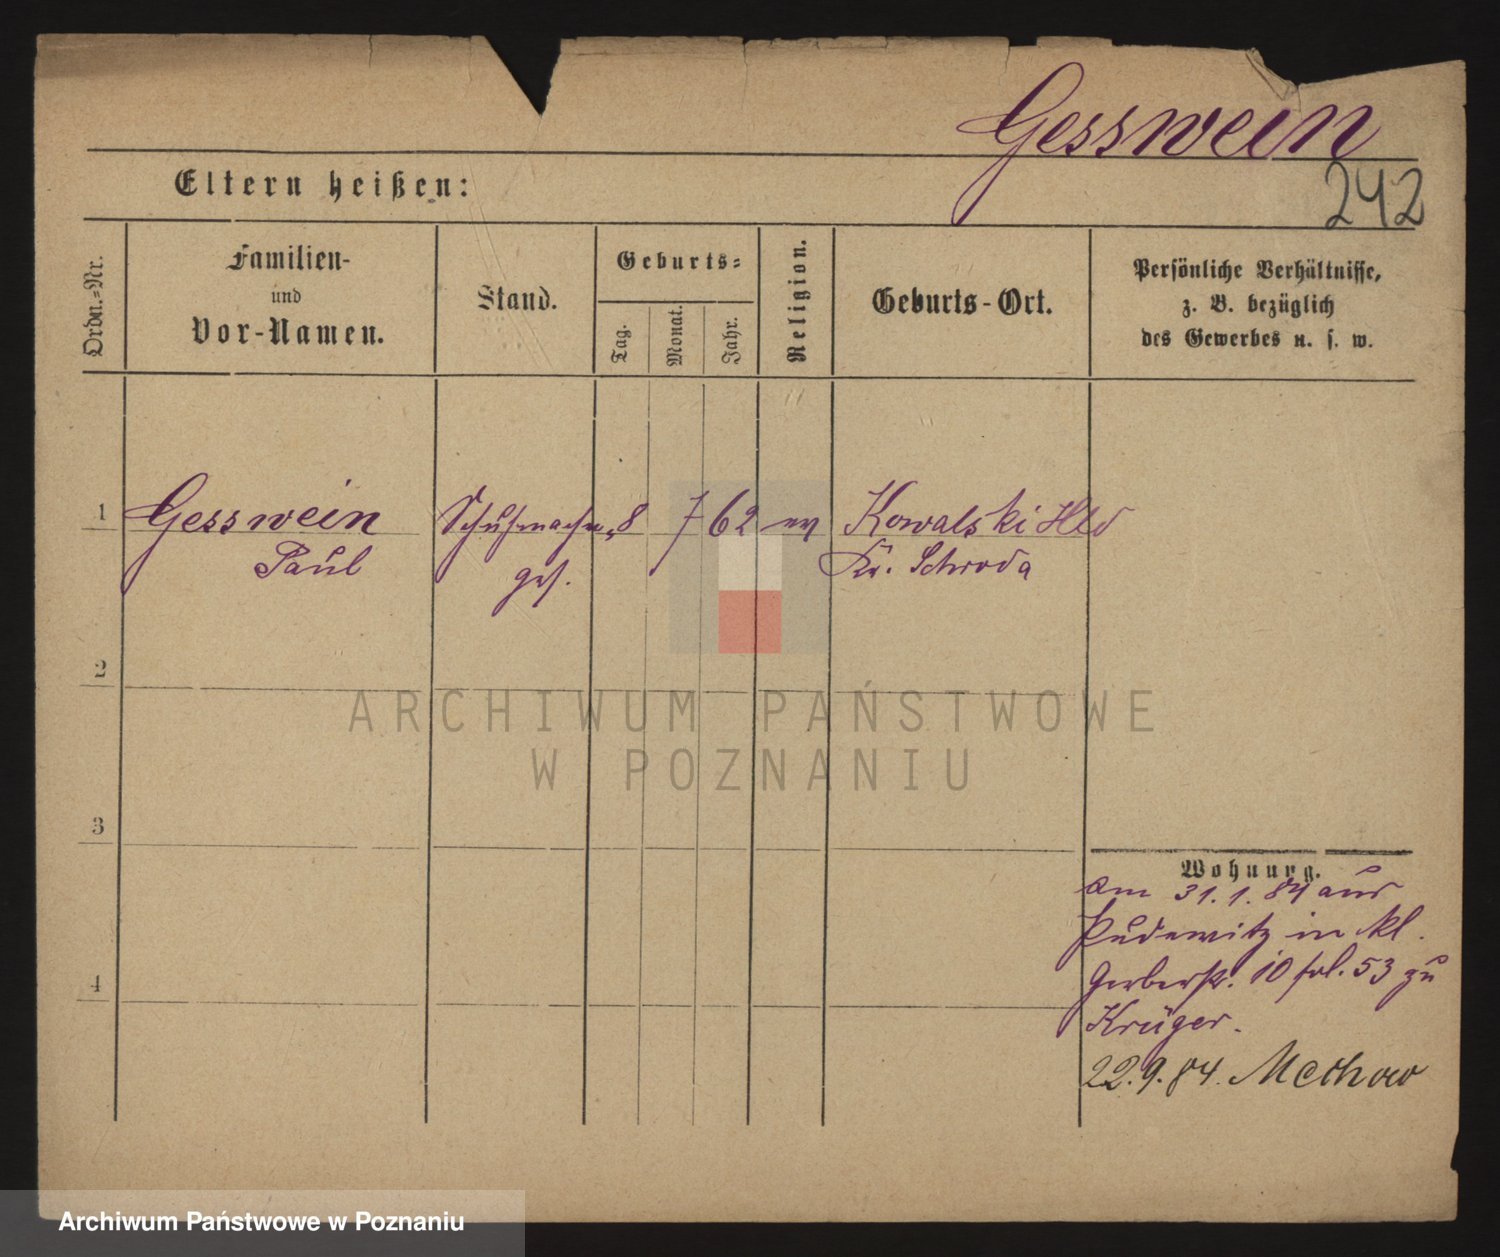 Gesswein
242
Eltern heißen:
Ordn.=Nr.
Familien-
und
Vor-Namen.
Stand.
Geburts=
Tag.
Monat.
Jahr.
Religion.
Geburts-Ort.
Persönliche Verhältnisse,
z. B. bezüglich
des Gewerbes u. s. w.
1 Gesswein Schuhmacher 8 7 62 ev Kowalski Hld
Paul ges. Kr. Schroda
2
3
4
Wohnung.
am 31.1.84 aus
Pudewitz in kl.
Gerberstr. 10 fol. 53 zu
Krüger.
22.9.84. Methow
ARCHIWUM PAŃSTWOWE
W POZNANIU
Archiwum Państwowe w Poznaniu